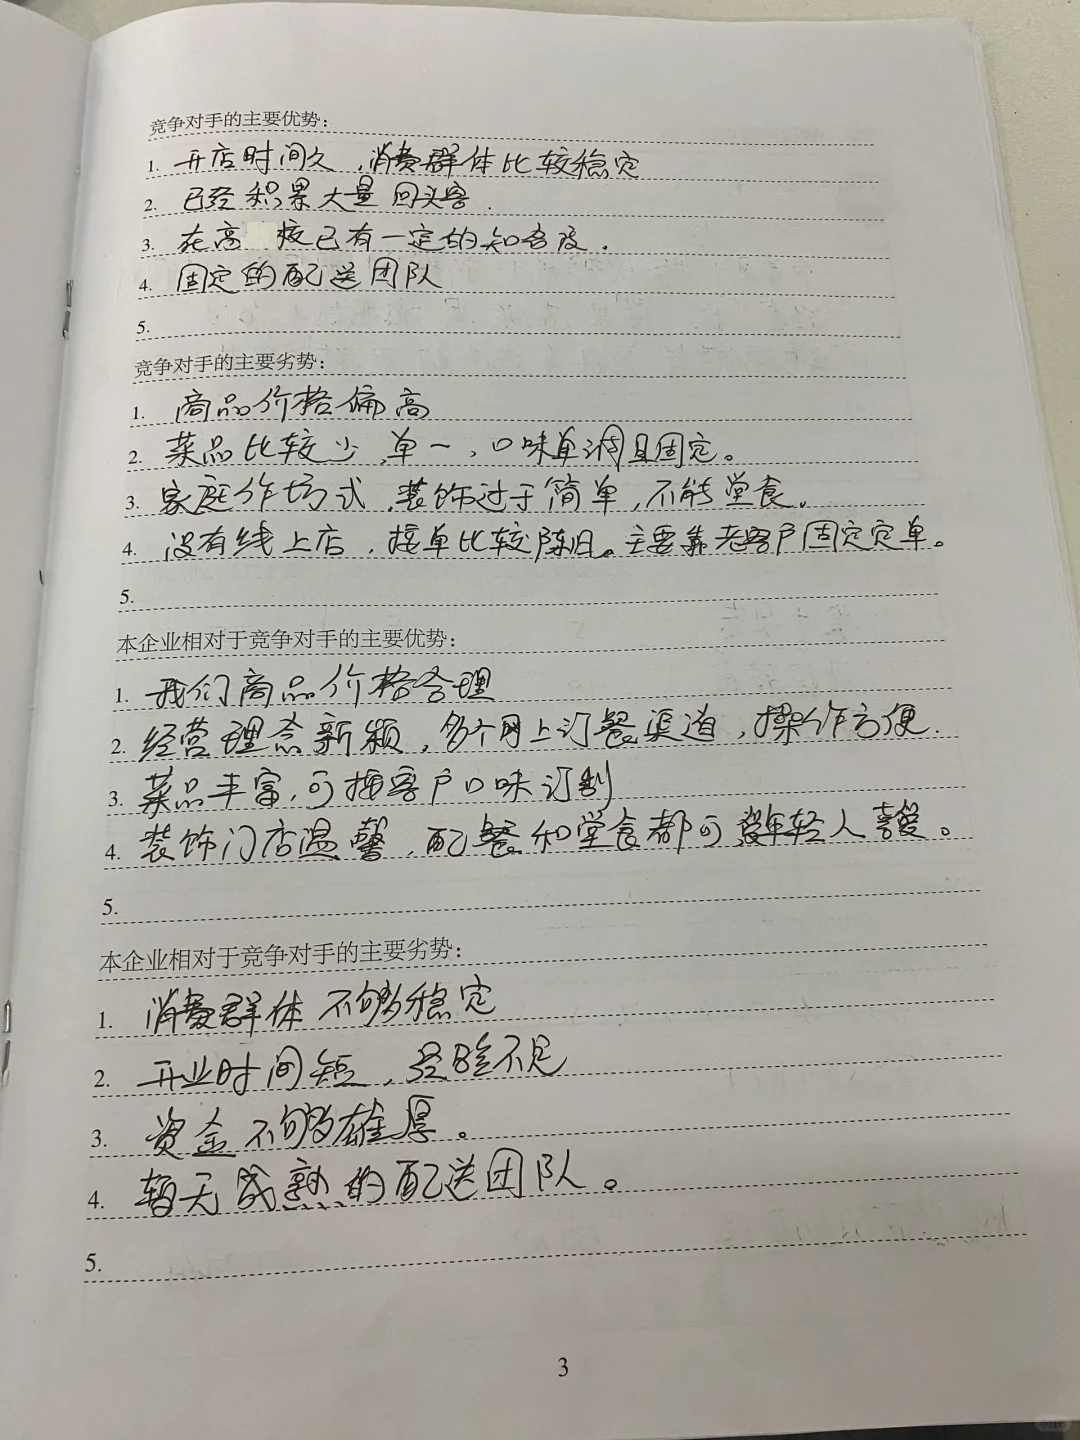 竞争对手的主要优势：
1. 开店时间久，消费群体比较稳定
2. 已经积累大量回头客．
3. 在高 校已有一定的知名度．
4. 固定的配送团队
5.
竞争对手的主要劣势：
1. 商品价格偏高
2. 菜品比较少，单一，口味单调且固定。
3. 家庭作坊式，装饰过于简单，不能堂食。
4. 没有线上店，接单比较陈旧。主要靠老客户固定定单。
5.
本企业相对于竞争对手的主要优势：
1. 我们商品价格合理
2. 经营理念新颖，多个网上订餐渠道，操作方便．
3. 菜品丰富，可按客户口味订制
4. 装饰门店温馨，配餐和堂食都可 年轻人喜爱。
5.
本企业相对于竞争对手的主要劣势：
1. 消费群体不够稳定
2. 开业时间短，经验不足
3. 资金不够雄厚。
4. 暂无成熟的配送团队。
5.
3